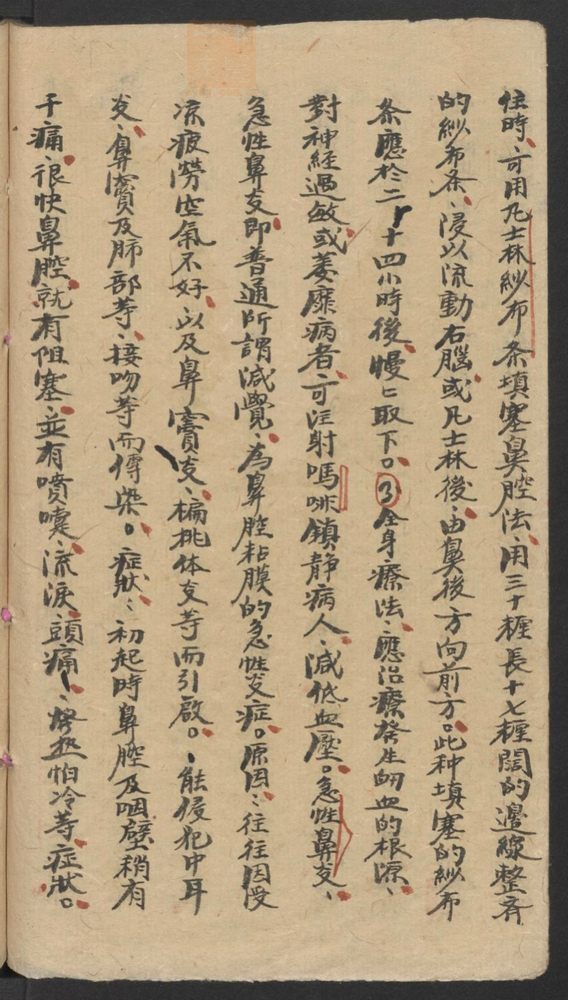 住時、可用凡士林紗布条填塞鼻腔法、用三十糎長十七糎闊的邊線整齐
的紗布条、浸以流動右腦或凡士林後、由鼻後方向前方。此种填塞的紗布
条應於二十四小時後、慢〻取下。③全身療法、應治療發生衂血的根源、
對神経過敏或萎靡病者、可注射嗎啡鎮静病人、減低血壓。急性鼻炎、
急性鼻炎即普通所謂減覺、為鼻腔粘膜的急性炎症。原因：往往因受
凉疲勞空氣不好、以及鼻竇炎、扁桃体炎等而引啟。、能侵犯中耳
炎、鼻竇及肺部等、接吻等而傳染。症狀：初起時鼻腔及咽壁稍有
干痛、很快鼻腔就有阻塞、並有噴嚏、流淚、頭痛、熱怕冷等症狀。